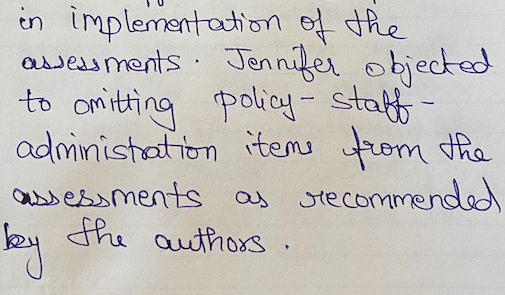 in implementation of the
assessments. Jennifer objected
to omitting policy-staff-
administration items from the
assessments as recommended
by the authors.